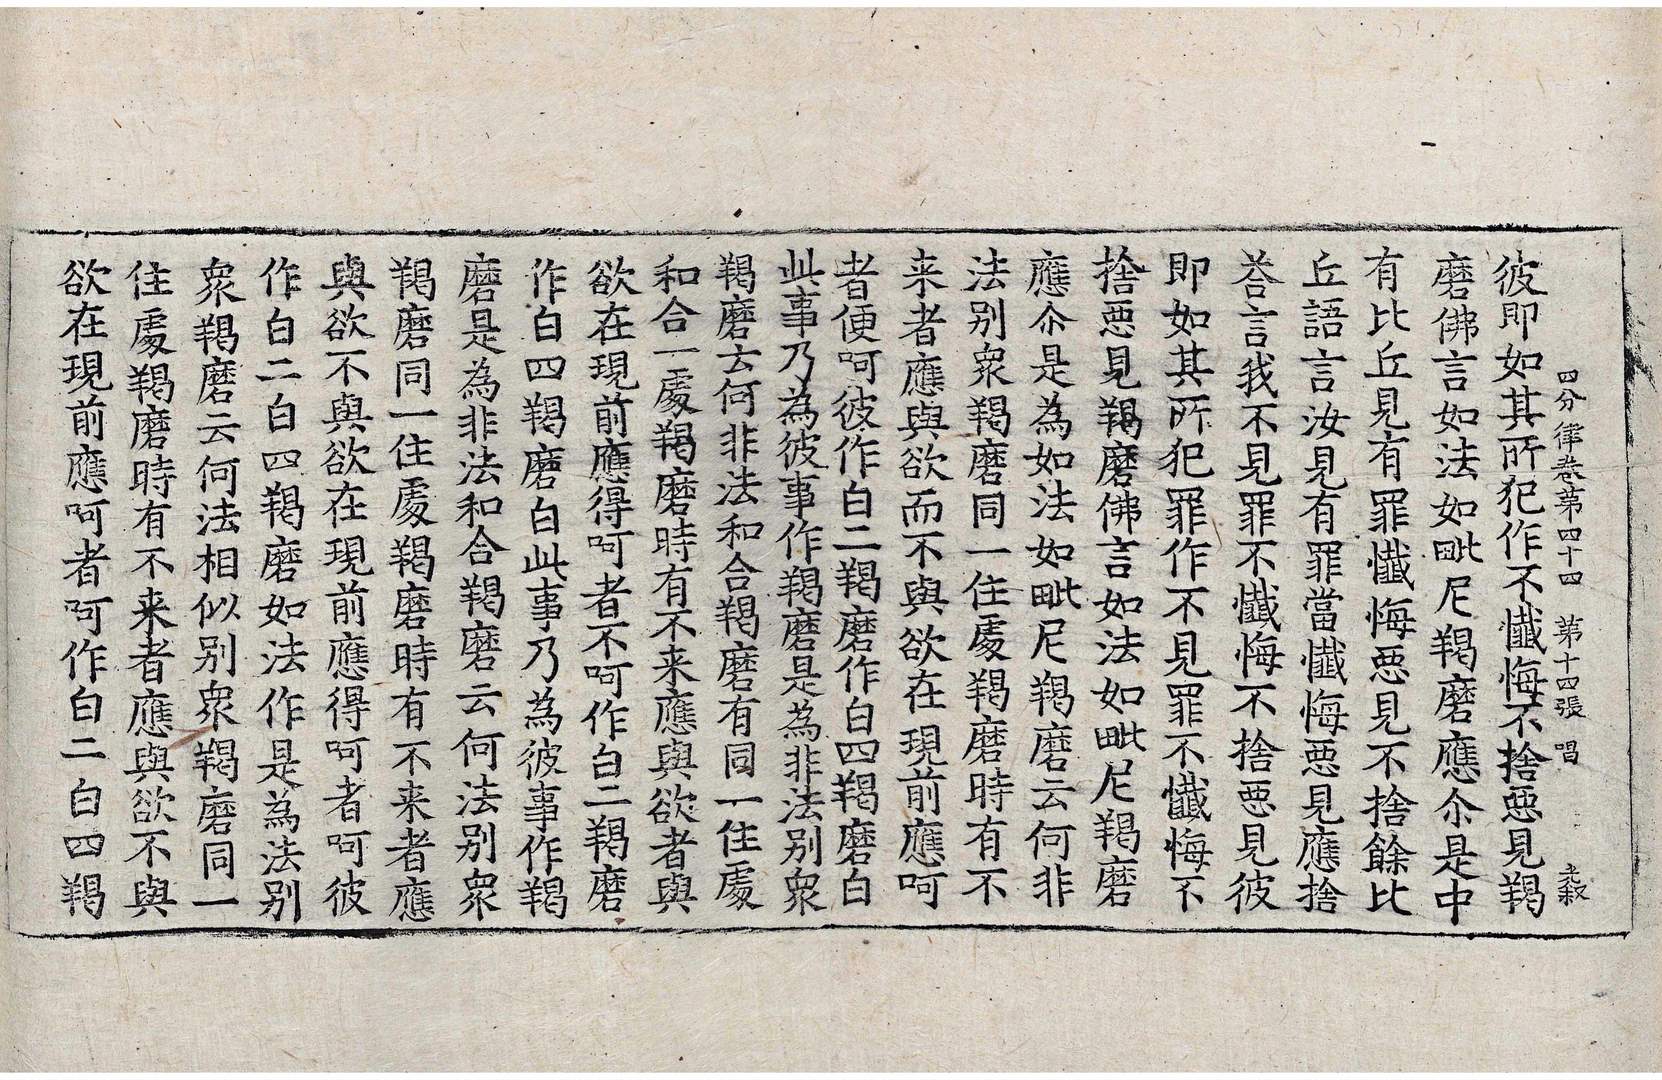 四分律卷第四十四 第十四張 唱
彼即如其所犯作不懺悔不捨惡見羯
磨佛言如法如毗尼羯磨應尒是中
有比丘見有罪懺悔惡見不捨餘比
丘語言汝見有罪當懺悔惡見應捨
荅言我不見罪不懺悔不捨惡見彼
即如其所犯罪作不見罪不懺悔不
捨惡見羯磨佛言如法如毗尼羯磨
應尒是為如法如毗尼羯磨云何非
法別衆羯磨同一住處羯磨時有不
来者應與欲而不與欲在現前應呵
者便呵彼作白二羯磨作白四羯磨白
此事乃為彼事作羯磨是為非法別衆
羯磨云何非法和合羯磨有同一住處
和合一處羯磨時有不来應與欲者與
欲在現前應得呵者不呵作白二羯磨
作白四羯磨白此事乃為彼事作羯
磨是為非法和合羯磨云何法別衆
羯磨同一住處羯磨時有不来者應
與欲不與欲在現前應得呵者呵彼
作白二白四羯磨如法作是為法別
衆羯磨云何法相似別衆羯磨同一
住處羯磨時有不来者應與欲不與
欲在現前應呵者呵作白二白四羯